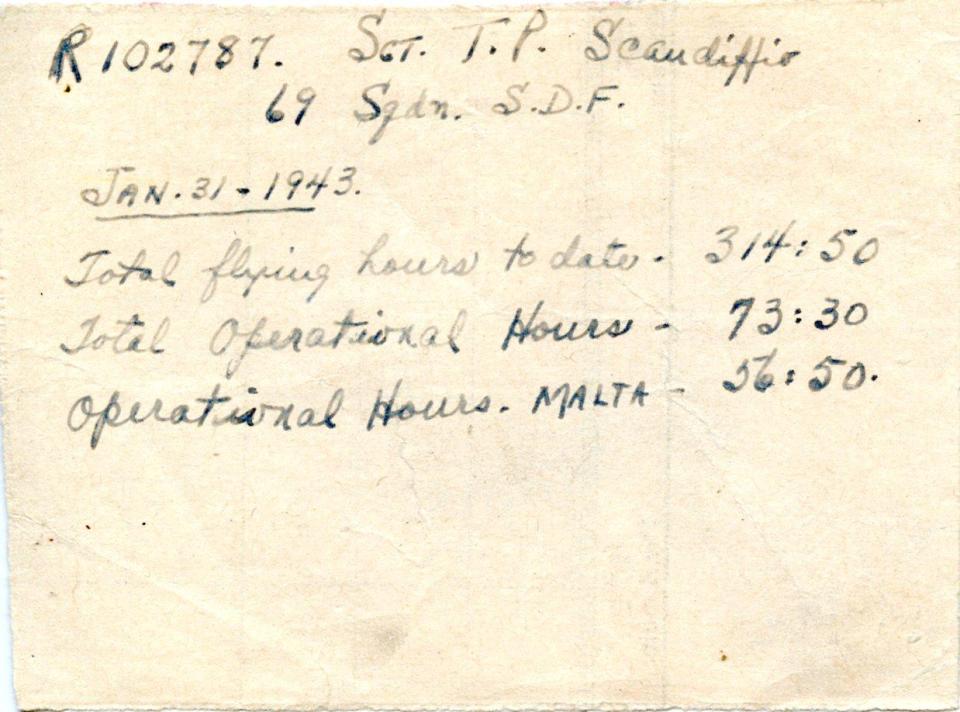 R102787. SGT. T.P. Scandiffio
69 Sqdn. S.D.F.
JAN. 31 - 1943.
Total flying hours to date - 314:50
Total Operational Hours - 73:30
Operational Hours. MALTA - 56:50.